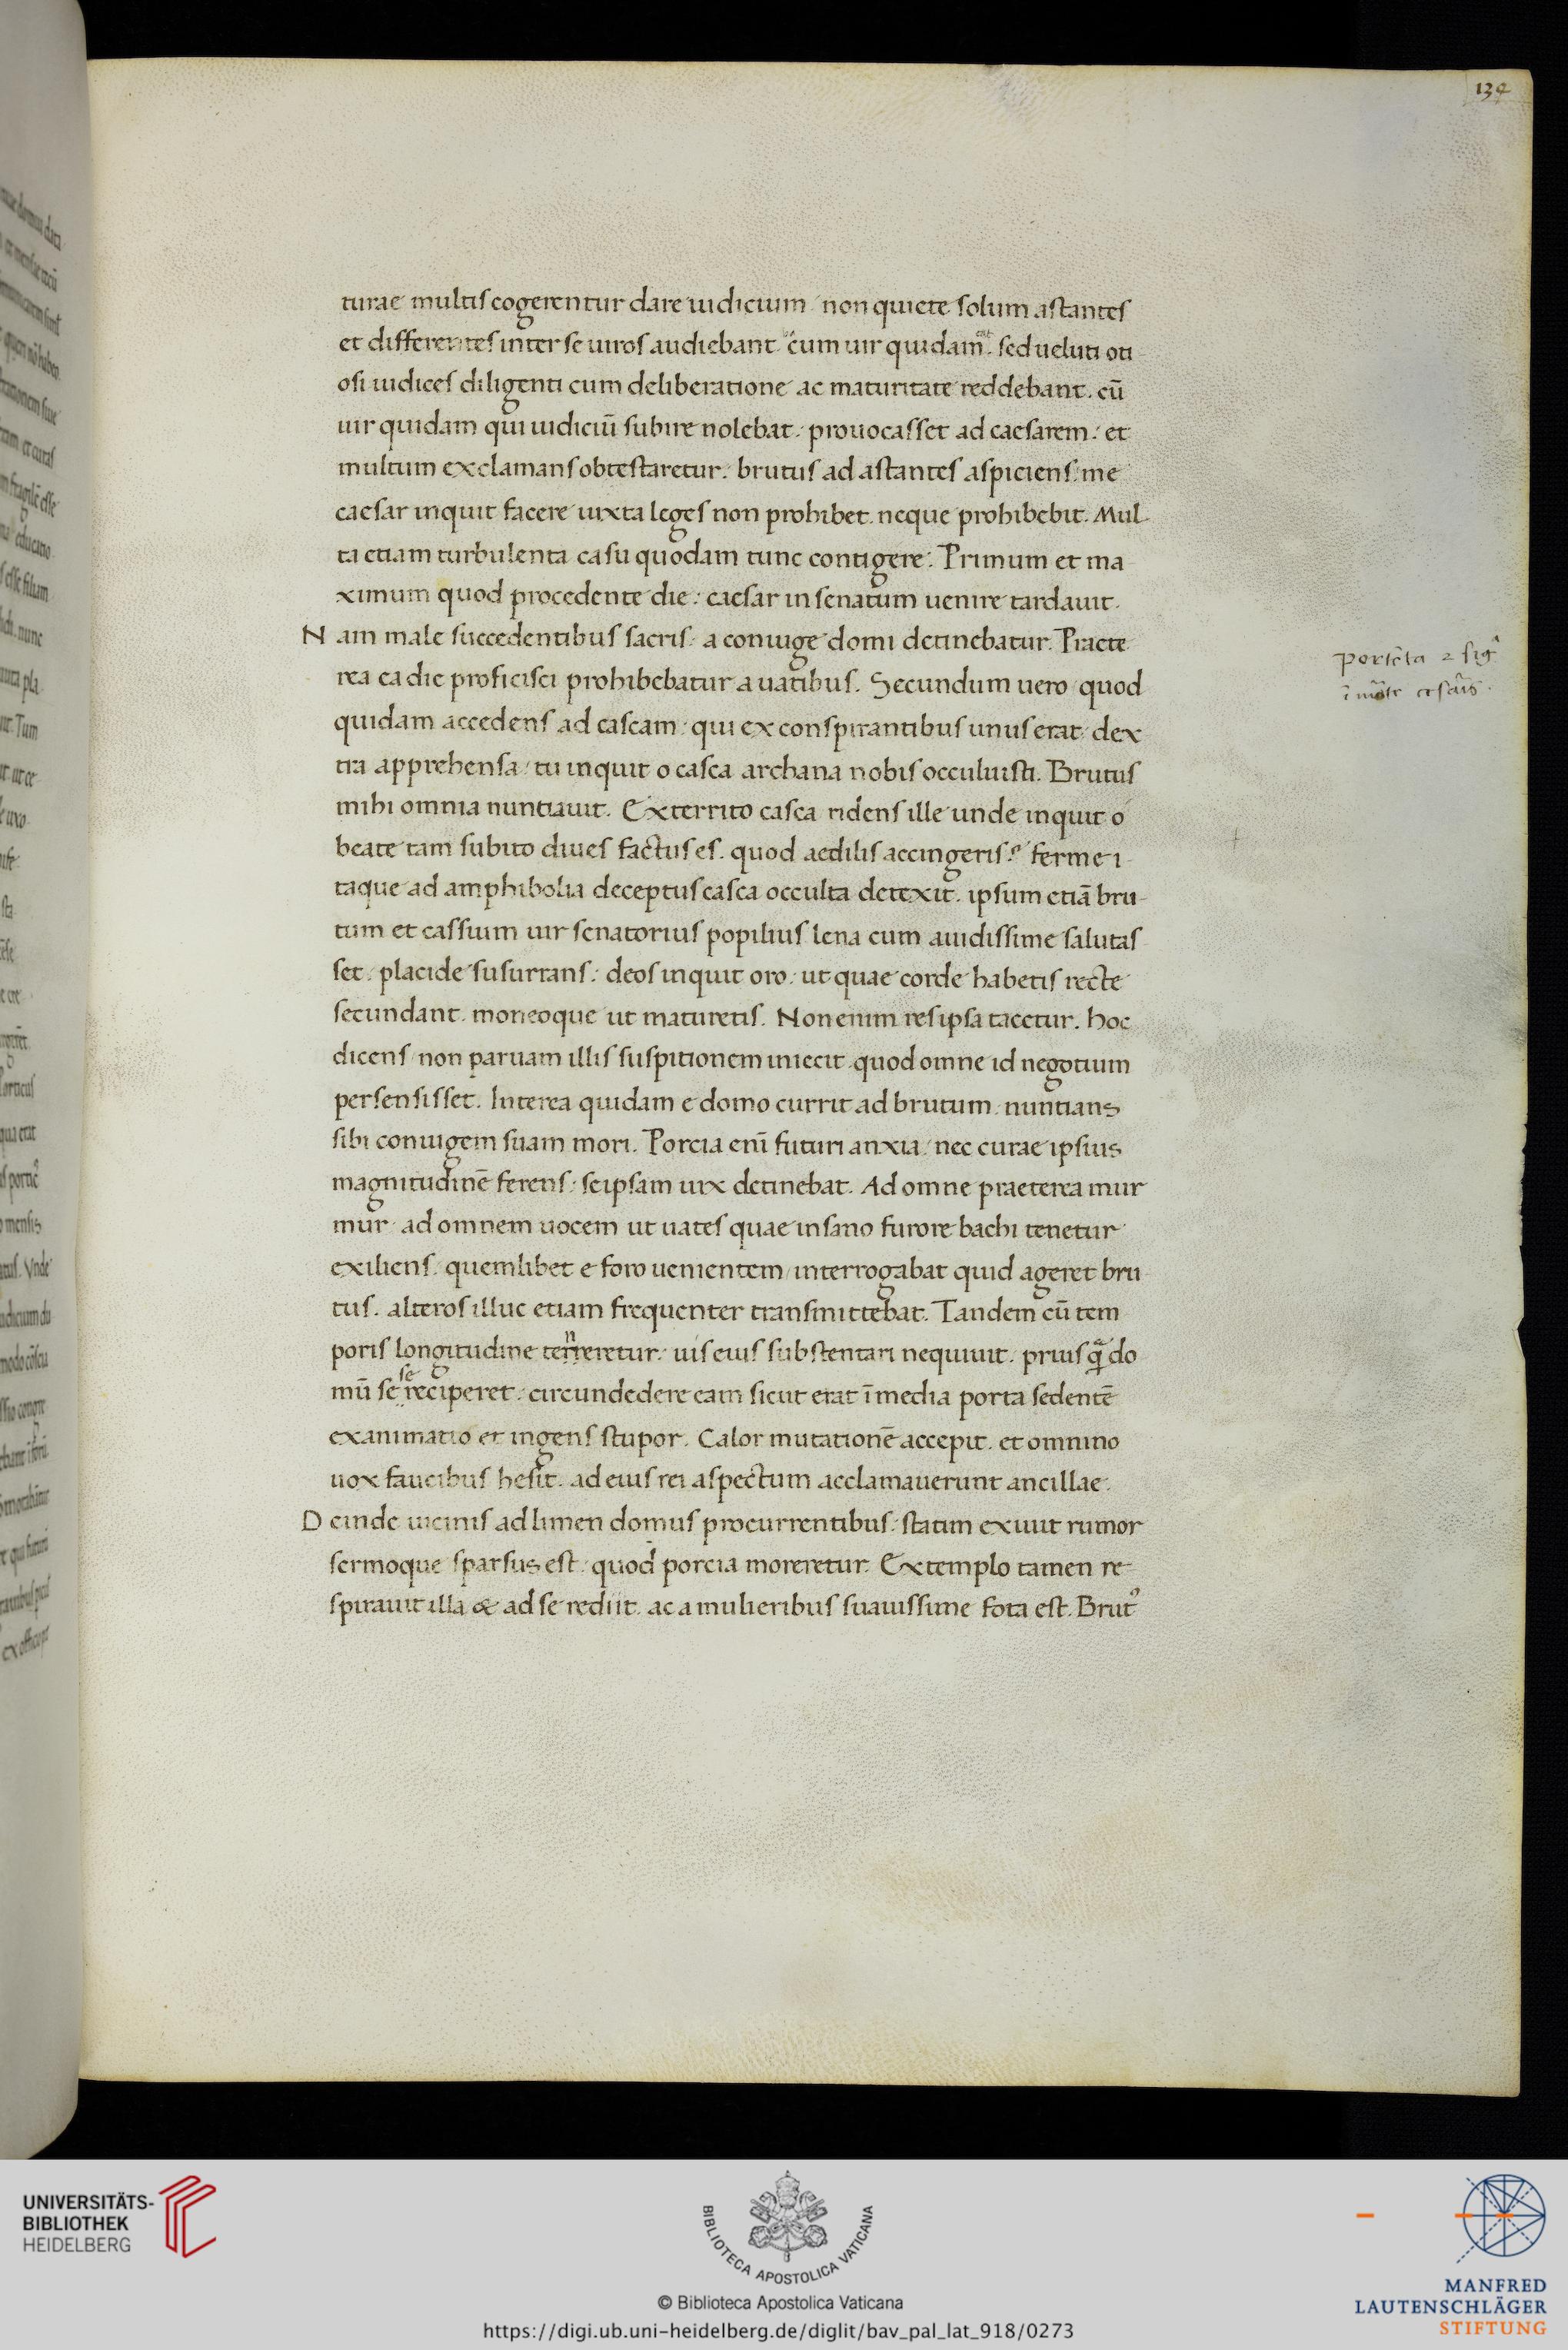 134
turae multis cogerentur dare iudicium non quiete solum astantes
et differentes inter se uiros audiebant. cum uir quidam. sed ueluti oti
osi iudices diligenti cum deliberatione ac maturitate reddebant. cū
uir quidam qui iudiciū subire nolebat. prouocasset ad caesarem. et
multum exclamans obtestaretur. brutus ad astantes aspiciens. me
caesar inquit facere iuxta leges non prohibet. neque prohibebit. Mul
ta etiam turbulenta casu quodam tunc contigere. Primum et ma
ximum quod procedente die. caesar in senatum uenire tardauit.
Nam male succedentibus sacris a coniuge domi detinebatur. Praete
rea ea die proficisci prohibebatur a uatibus. Secundum uero quod
quidam accedens ad cascam. qui ex conspirantibus unus erat dex
tra apprehensa. tu inquit o casca archana nobis occuluisti. Brutus
mihi omnia nuntiauit. Exterrito casca ridens ille unde inquit o
beate tam subito diues factus es. quod aedilis accingeris? ferme i
taque ad amphibolia deceptus casca occulta detexit. ipsum etiā bru
tum et cassium uir senatorius popilius lena cum auidissime salutas
set. placide susurrans. deos inquit oro. ut quae corde habetis recte
secundant. moneoque ut maturetis. Non enim res ipsa tacetur. Hoc
dicens non paruam illis suspitionem iniecit quod omne id negotium
persensisset. Interea quidam e domo currit ad brutum. nuntians
sibi coniugem suam mori. Porcia eni futuri anxia. nec curae ipsius
magnitudinē ferens. seipsam uix detinebat. Ad omne praeterea mur
mur ad omnem uocem ut uates quae insano furore bachi tenetur
exiliens. quemlibet e foro uenientem interrogabat quid ageret bru
tus. alteros illuc etiam frequenter transmittebat. Tandem cū tem
poris longitudine terreretur. uis eius substentari nequiuit. priusq̄ do
mū se reciperet. circundedere eam sicut erat ī media porta sedentē
exanimatio et ingens stupor. Calor mutationē accepit. et omnino
uox faucibus hesit. ad eius rei aspectum acclamauerunt ancillae.
Deinde uicinis ad limen domus procurrentibus. statim exiuit rumor
sermoque sparsus est. quod porcia moreretur. Extemplo tamen re
spirauit illa & ad se rediit. ac a mulieribus suauissime fota est. Brut⁹
portēta
UNIVERSITÄTS-
BIBLIOTHEK
HEIDELBERG
BIBLIOTECA APOSTOLICA VATICANA
© Biblioteca Apostolica Vaticana
https://digi.ub.uni-heidelberg.de/diglit/bav_pal_lat_918/0273
MANFRED
LAUTENSCHLÄGER
STIFTUNG